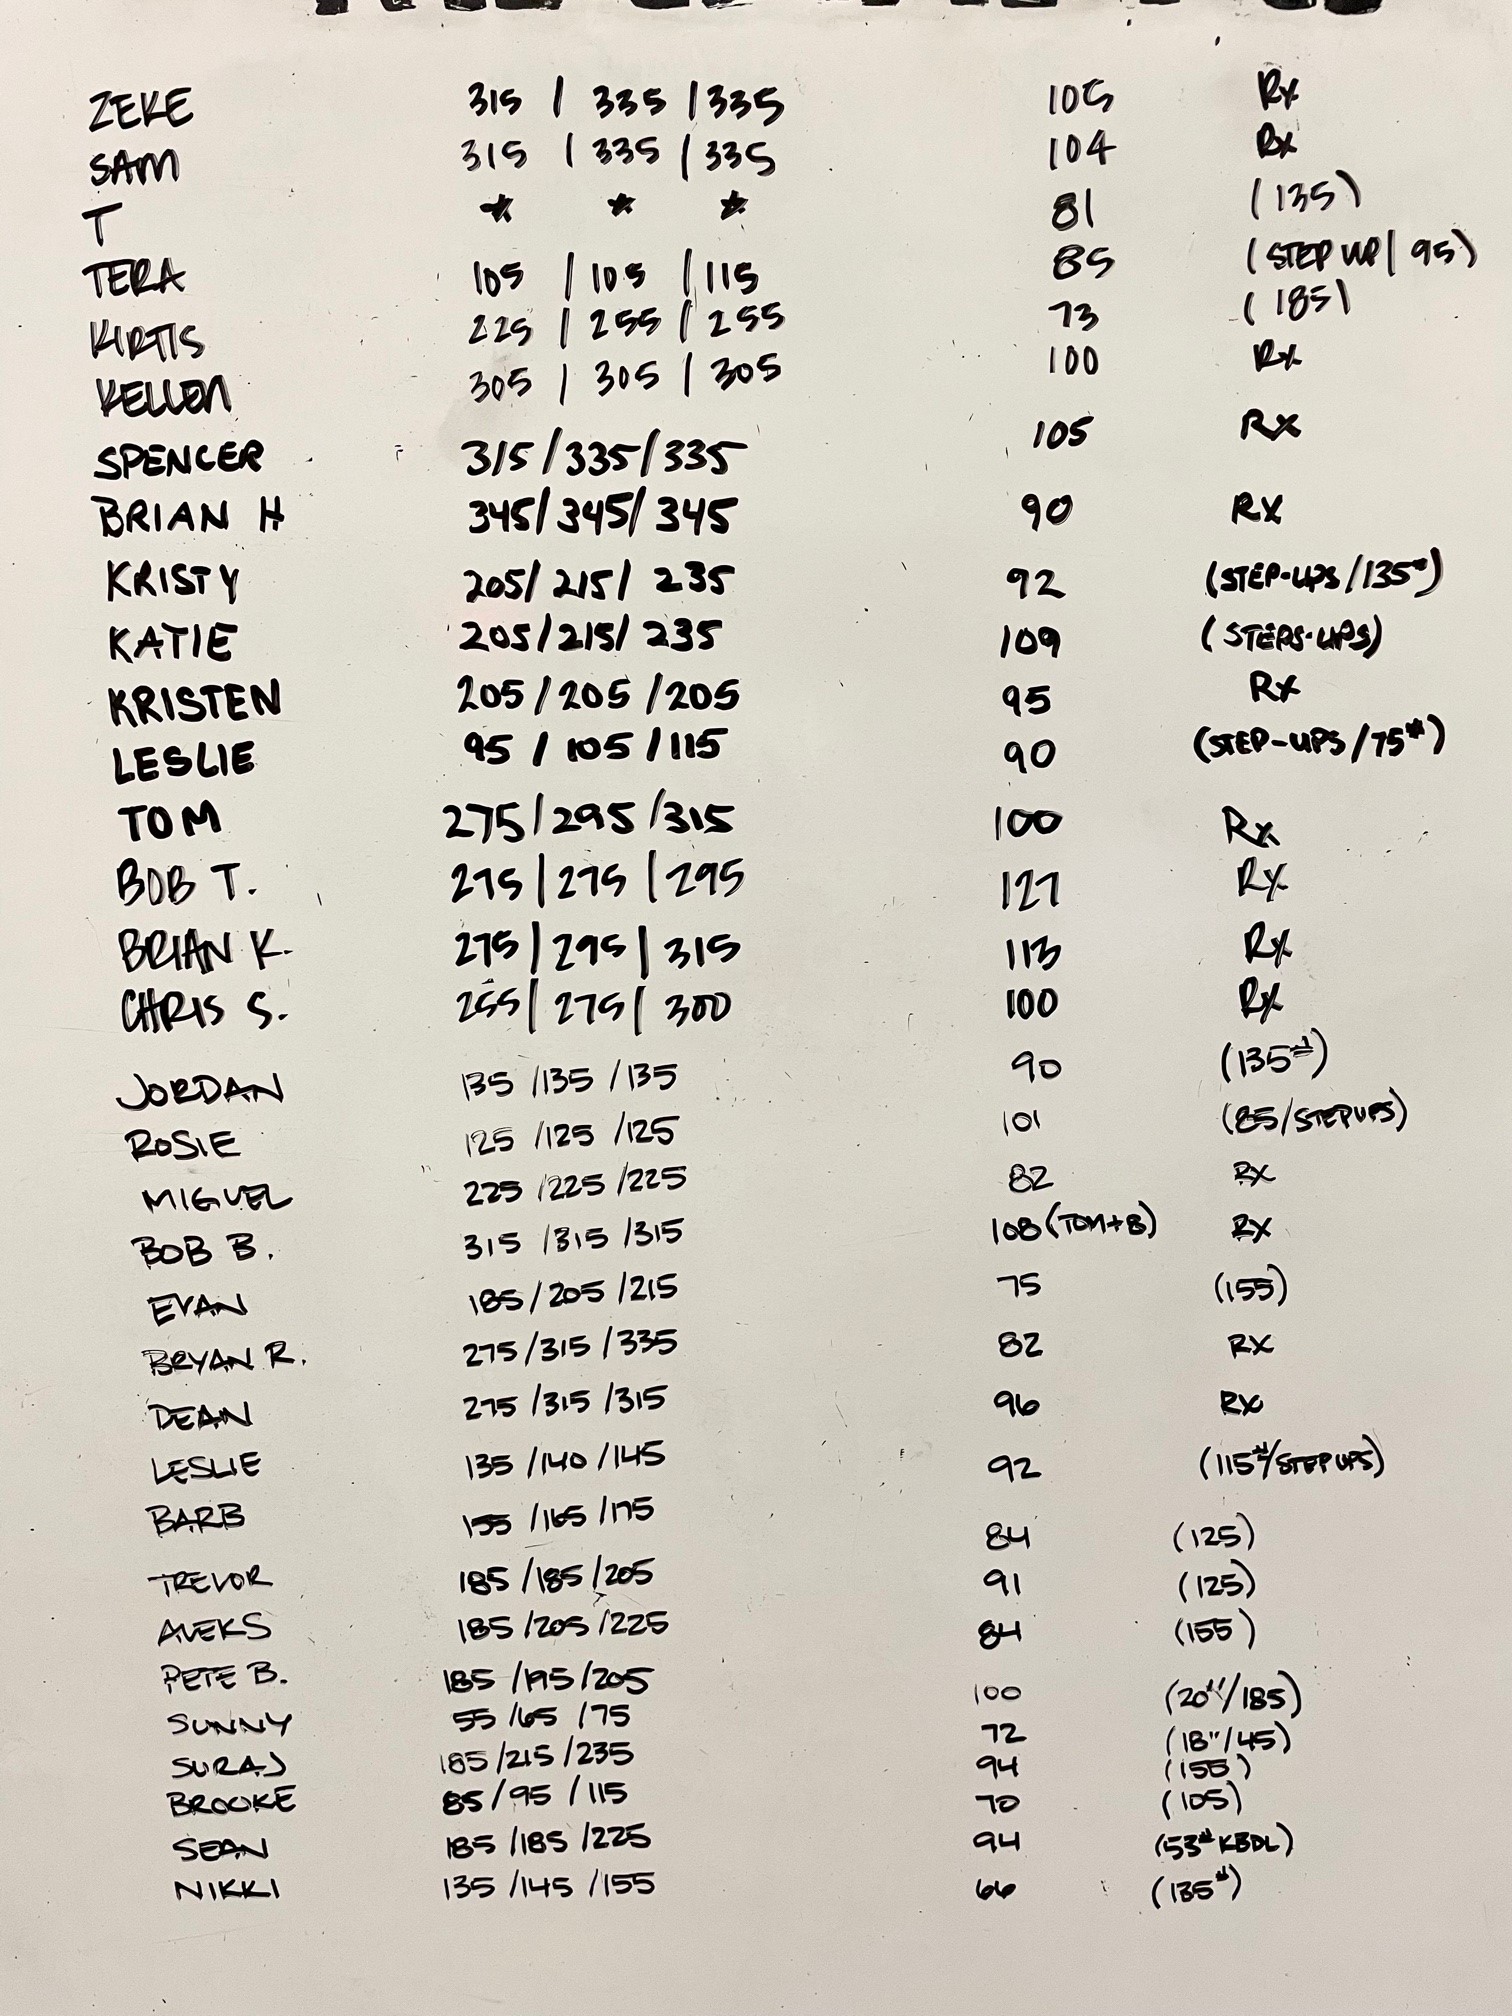 ZEKE 315 / 335 / 335 105 Rx
SAM 315 / 335 / 335 104 Rx
T * * * 81 (135)
TERA 105 / 105 / 115 85 (STEP UP / 95)
KIRTIS 225 / 255 / 255 73 (185)
KELLEN 305 / 305 / 305 100 Rx
SPENCER 315/335/335 105 Rx
BRIAN H 345/345/345 90 RX
KRISTY 205/215/235 92 (STEP-UPS/135#)
KATIE 205/215/235 109 (STEPS-UPS)
KRISTEN 205/205/205 95 Rx
LESLIE 95/105/115 90 (STEP-UPS/75#)
TOM 275/295/315 100 Rx
BOB T. 275/275/295 127 Rx
BRIAN K. 275/295/315 113 Rx
CHRIS S. 255/275/300 100 Rx
JORDAN 135/135/135 90 (135#)
ROSIE 125/125/125 101 (85/STEPUPS)
MIGUEL 225/225/225 82 RX
BOB B. 315/315/315 108 (TOM+B) RX
EVAN 185/205/215 75 (155)
BRYAN R. 275/315/335 82 RX
DEAN 275/315/315 96 RX
LESLIE 135/140/145 92 (115#/STEPUPS)
BARB 155/165/175 84 (125)
TREVOR 185/185/205 91 (125)
ALEKS 185/205/225 84 (155)
PETE B. 185/195/205 100 (20"/185)
SUNNY 55/65/75 72 (18"/45)
SURAJ 185/215/235 94 (155)
BROOKE 85/95/115 70 (105)
SEAN 185/185/225 94 (53# KBDL)
NIKKI 135/145/155 66 (135#)